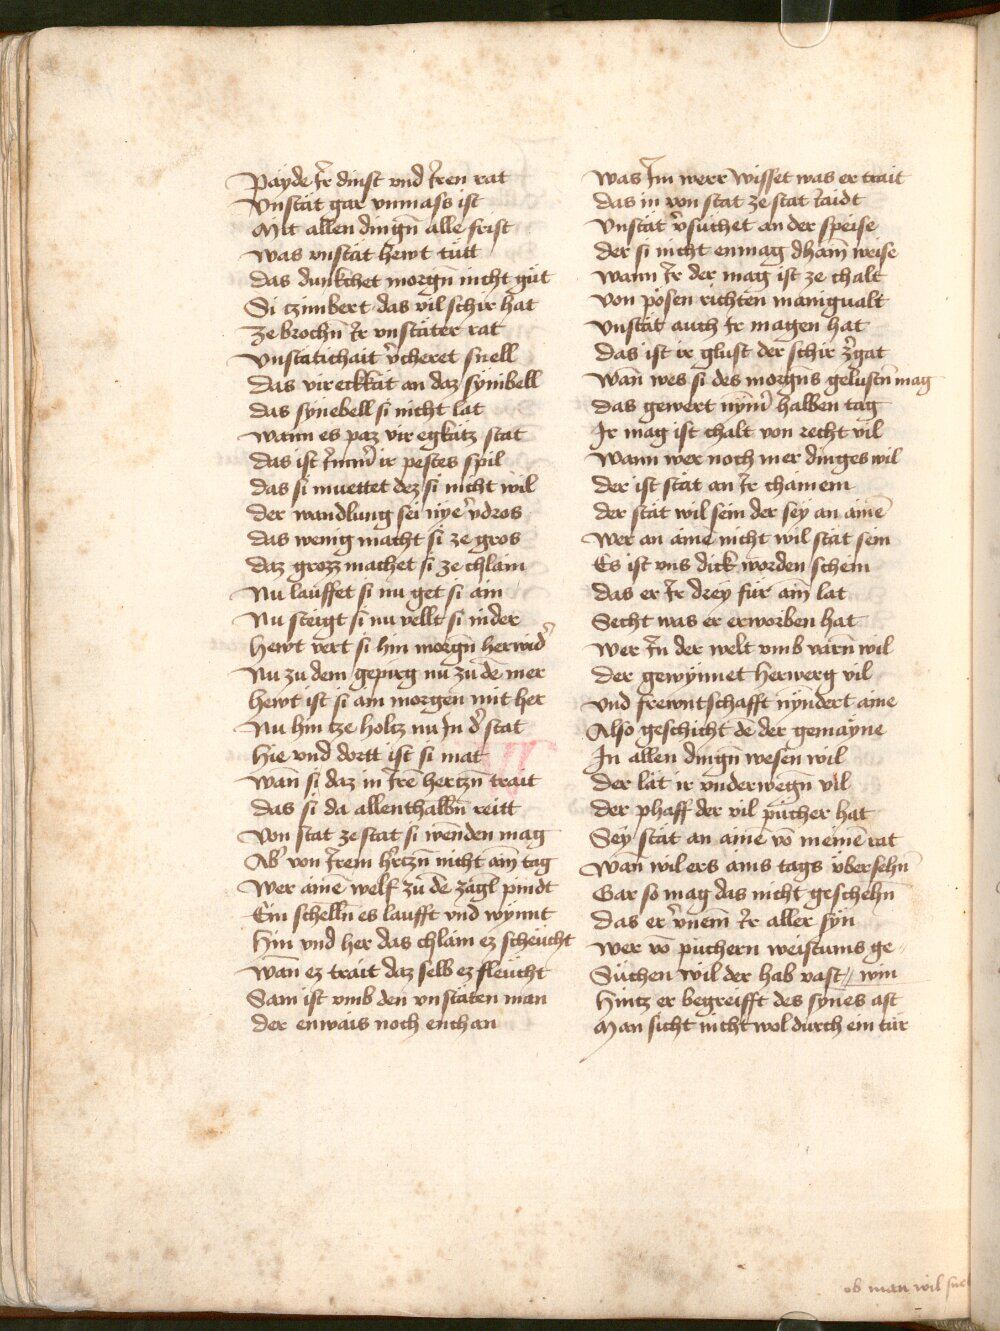 Payde ir dinst vnd iren rat
Vnstät gar vnmass ist
Mit allen dingn̄ alle frist
Was vnstät hewt tütt
Das dunkchet morgn̄ nicht güt
Si czimbert das vil schir hat
Ze brochn̄ ir vnstäter rat
Vnstätichait v̓cheret snell
Das vireckkät an daz synibell
Das synebell si nicht lat
Wann es paz vir egkätz stat
Das ist im̄m̓ ir pestes spil
Das si muettet dez si nicht wil
Der wandlung sei nye v̓dros
Das wenig macht si ze gros
Daz grozz machet si ze chlain
Nu lauffet si nu get si ain
Nu steigt si nu vellt si nider
Hewt vert si hin morgn̄ herwid̓
Nu zu dem gepirg nu zu dē mer
Hewt ist si am morgen mit her
Nu hin tze holtz nu in d̓ stat
Hie vnd dortt ist si mat
Wān si daz in irē hertzn̄ trait
Das si da allenthalbn̄ reitt
Von stat ze stat si wenden mag
Ab̓ von irem h̓rtzn̄ nicht ain tag
Wer ainē welf zu dē zagl pindt
Ein schelln̄ es laufft vnd wynnt
Hin vnd her das chlain ez scheücht
Wān ez trait daz selb ez fleücht
Sam ist vmb den vnstäten man
Der enwais noch enchan
Was im werr wisset was er trait
Das in von stat ze stat iaidt
Vnstät v̓suchet an der speise
Der si nicht enmag dhain̄ weise
Wann ir der mag ist ze chalt
Von pösen richten manigualt
Vnstät auch ir magen hat
Das ist ir glust der schir z̓gat
Wān wes si des morgn̄s gelustn̄ mag
Das gewert nym̄ halben tag
Ir mag ist chalt von recht vil
Wann wer noch mer dinges wil
Der ist stät an ir chainem
Der stät wil sein der sey an ainē
Wer an ainē nicht wil stät sein
Es ist vns dick worden schein
Das er ir drey für ain̄ lat
Secht was er erworben hat
Wer in der welt vmb varn̄ wil
Der gewynnet herwerg vil
Vnd frewntschafft nyndert aine
Also geschicht dē der gemayne
In allen dingn̄ wesen wil
Der lät ir vnderwegn̄ vil
Der phaff der vil pücher hat
Sey stät an aine vō meinē rat
Wān wil ers ains tags übersehn̄
Gar so mag das nicht geschehn̄
Das er v̓nem̄ ir aller syn
Wer vō püchern weistums ge
Süchen wil der hab vast // win
Hintz er begreifft des synes ast
Man sicht nicht wol durch ein tür
ob man wil